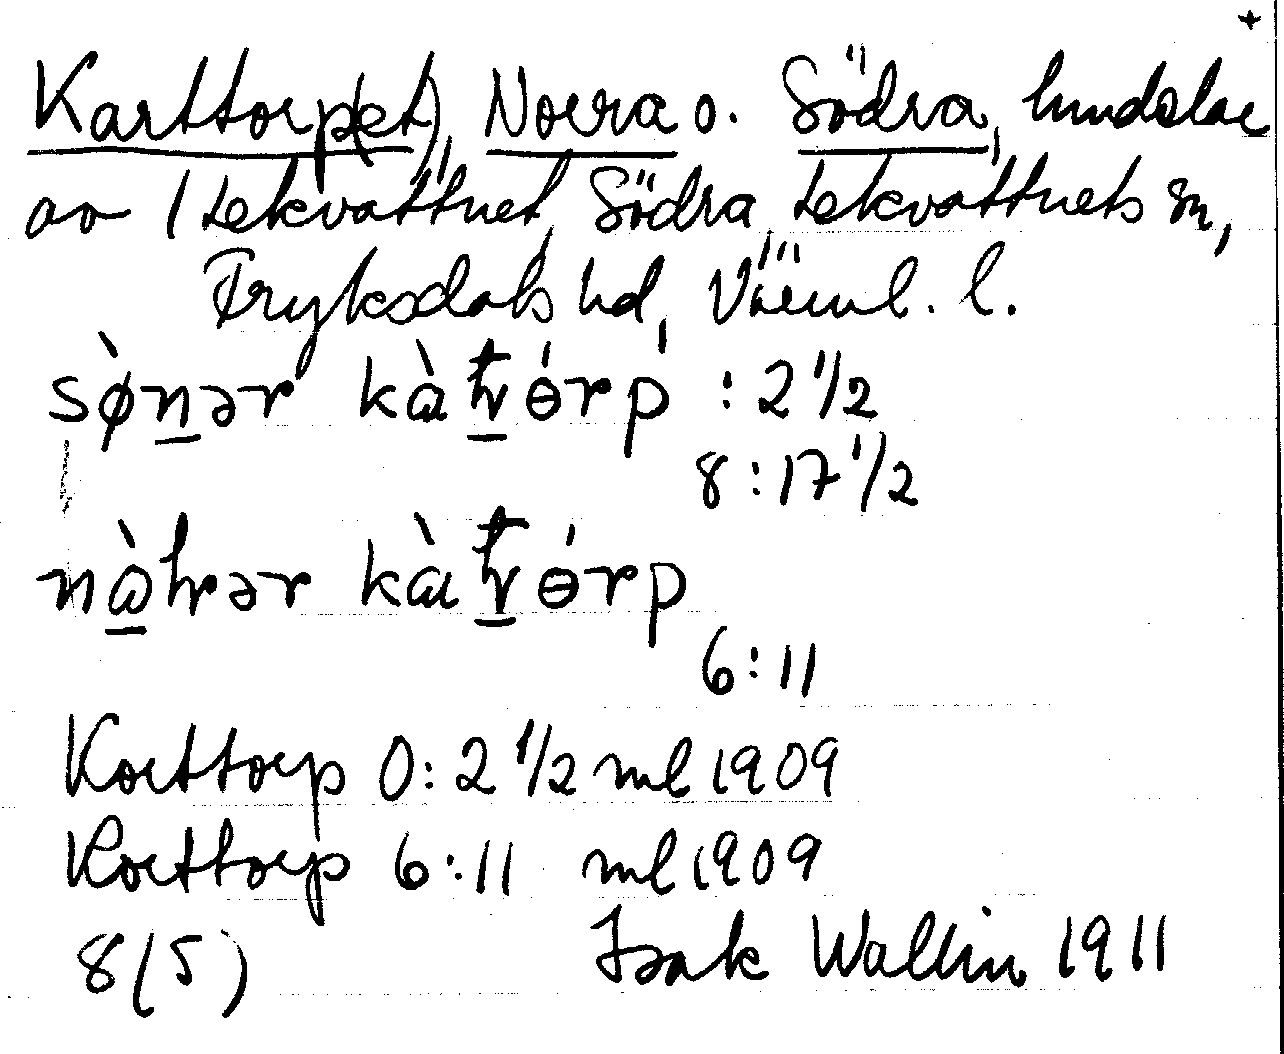 Karttorp(et), Norra o. Södra, hmdslar
av 1 Lekvattnet Södra, Lekvattnets sn,
Fryksdals hd, Värml. l.
sø̀nər kàtɵ́rp : 2 1/2
8:17 1/2
nàrər kàtɵ́rp
6:11
Korttorp 0: 2 1/2 ml 1909
Korttorp 6:11 ml 1909
8(5) Isak Wallin 1911